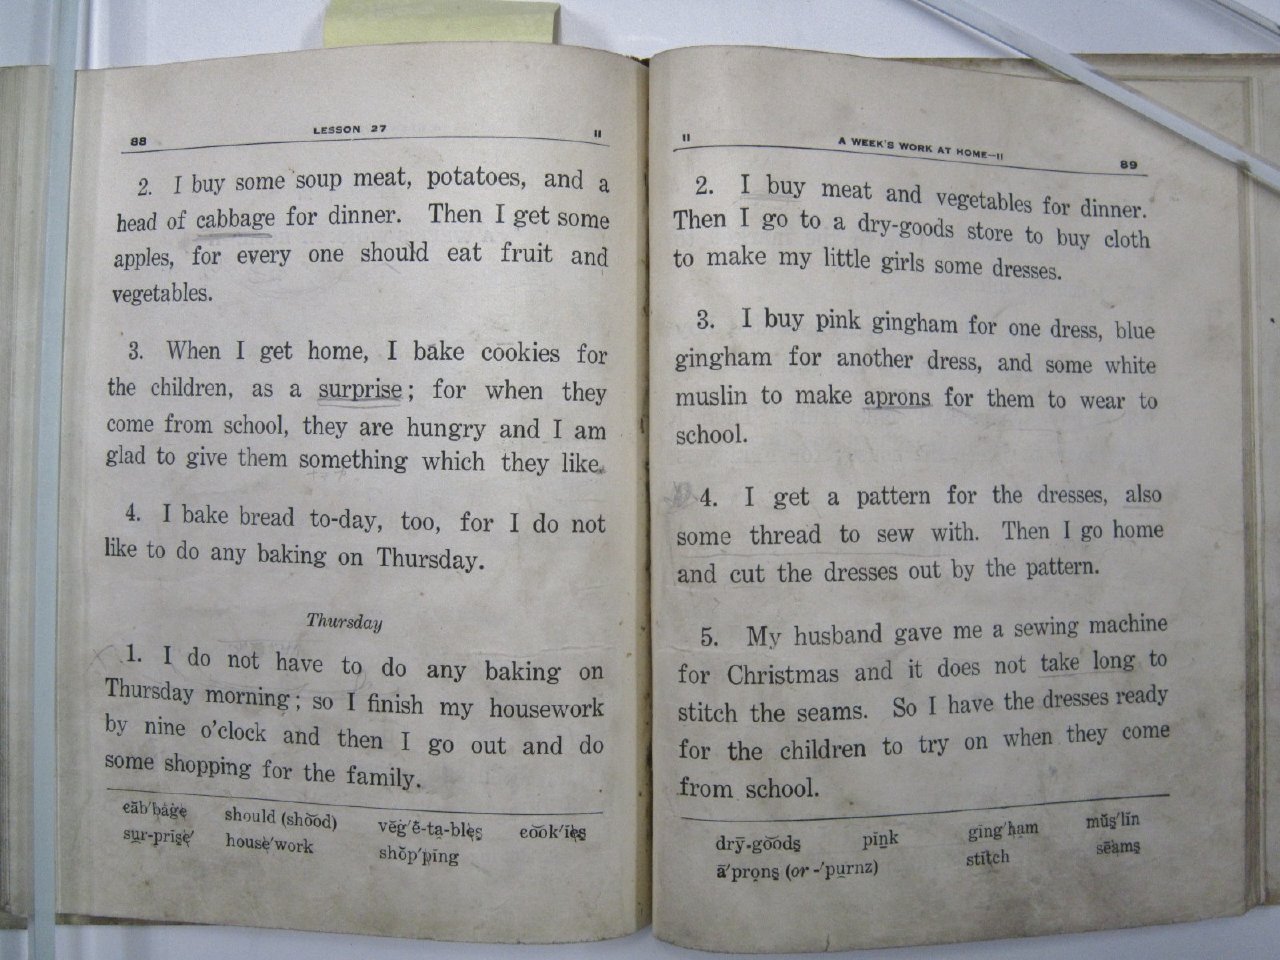 88 LESSON 27 II
2. I buy some soup meat, potatoes, and a
head of cabbage for dinner. Then I get some
apples, for every one should eat fruit and
vegetables.
3. When I get home, I bake cookies for
the children, as a surprise; for when they
come from school, they are hungry and I am
glad to give them something which they like.
4. I bake bread to-day, too, for I do not
like to do any baking on Thursday.
Thursday
1. I do not have to do any baking on
Thursday morning; so I finish my housework
by nine o'clock and then I go out and do
some shopping for the family.
căb′bȧġe should (sho͝od) vĕġ′ê-ta-bleş co͝ok′ieş
sur-prīşe′ house′work shŏp′ping
II A WEEK'S WORK AT HOME—II 89
2. I buy meat and vegetables for dinner.
Then I go to a dry-goods store to buy cloth
to make my little girls some dresses.
3. I buy pink gingham for one dress, blue
gingham for another dress, and some white
muslin to make aprons for them to wear to
school.
4. I get a pattern for the dresses, also
some thread to sew with. Then I go home
and cut the dresses out by the pattern.
5. My husband gave me a sewing machine
for Christmas and it does not take long to
stitch the seams. So I have the dresses ready
for the children to try on when they come
from school.
drȳ-go͝odş pĭnk gĭng′ham mŭş′lĭn
ā′pronş (or -′purnz) stĭtch sēamş